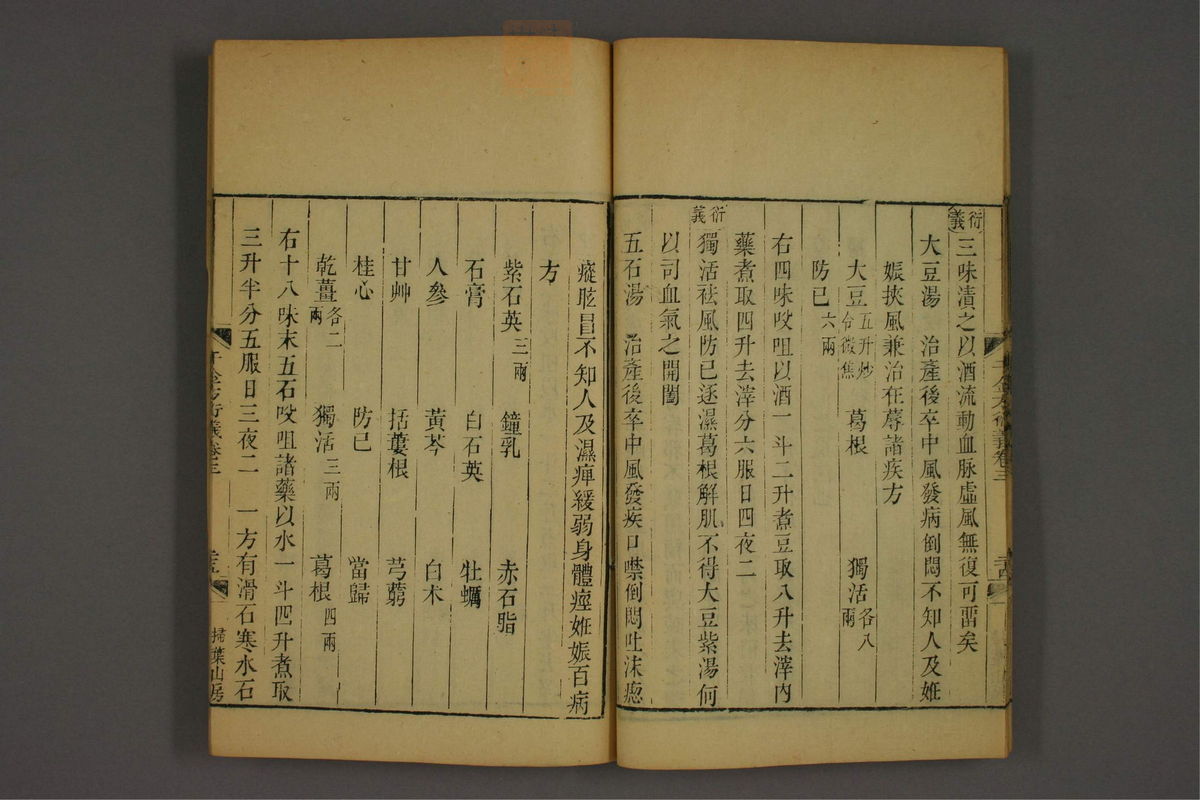 衍義三味漬之以酒流動血脉虛風無復可畱矣
大豆湯　治產後卒中風發病倒悶不知人及姙
娠挾風兼治在蓐諸疾方
大豆五升炒令微焦　葛根　獨活各八兩
防已六兩
右四味㕮咀以酒一斗二升煮豆取八升去滓內
藥煮取四升去滓分六服日四夜二
衍義獨活祛風防已逐濕葛根解肌不得大豆紫湯何
以司血氣之開闔
五石湯　治產後卒中風發疾口噤倒悶吐沫瘛
瘲眩冒不知人及濕痺緩弱身體痙姙娠百病
方
紫石英三兩　鐘乳　赤石脂
石膏　白石英　牡蠣
人參　黃芩　白朮
甘艸　括蔞根　芎藭
桂心　防已　當歸
乾薑各二兩　獨活三兩　葛根四兩
右十八味末五石㕮咀諸藥以水一斗四升煮取
三升半分五服日三夜二　一方有滑石寒水石
千金方衍義卷三
掃葉山房